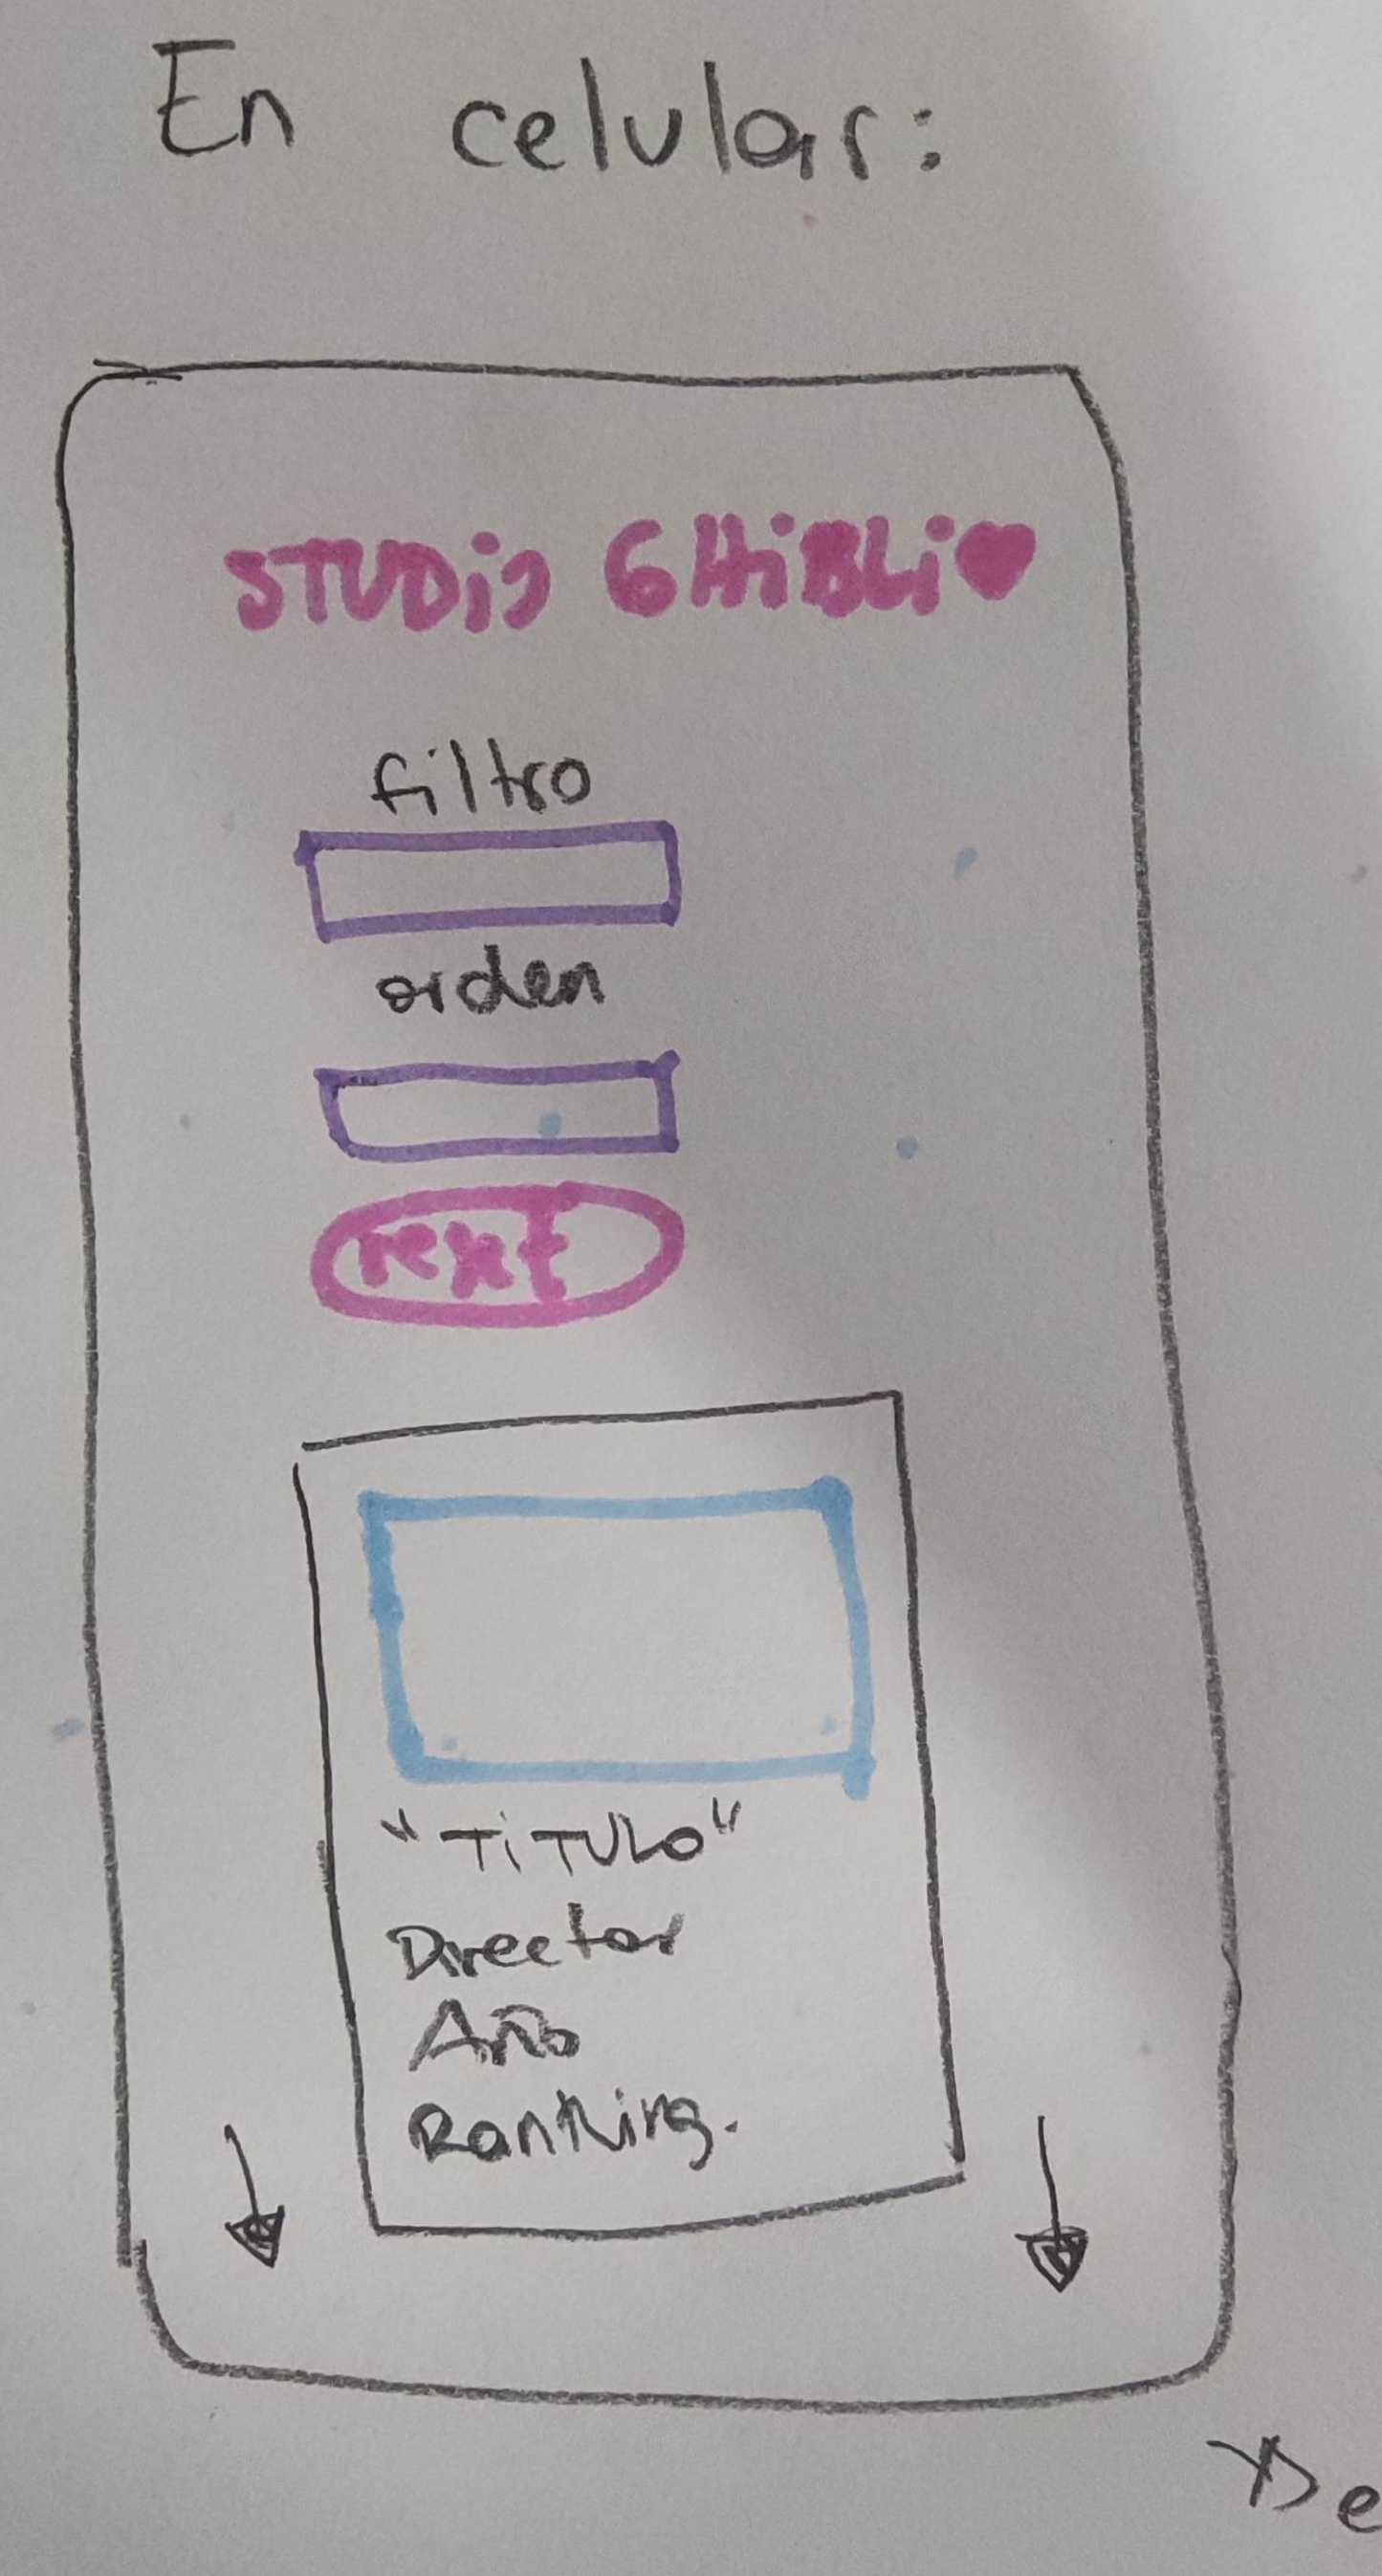 En celular:
STUDiO GHiBLi
filtro
orden
text
"TiTULO"
Director
Año
Ranking.